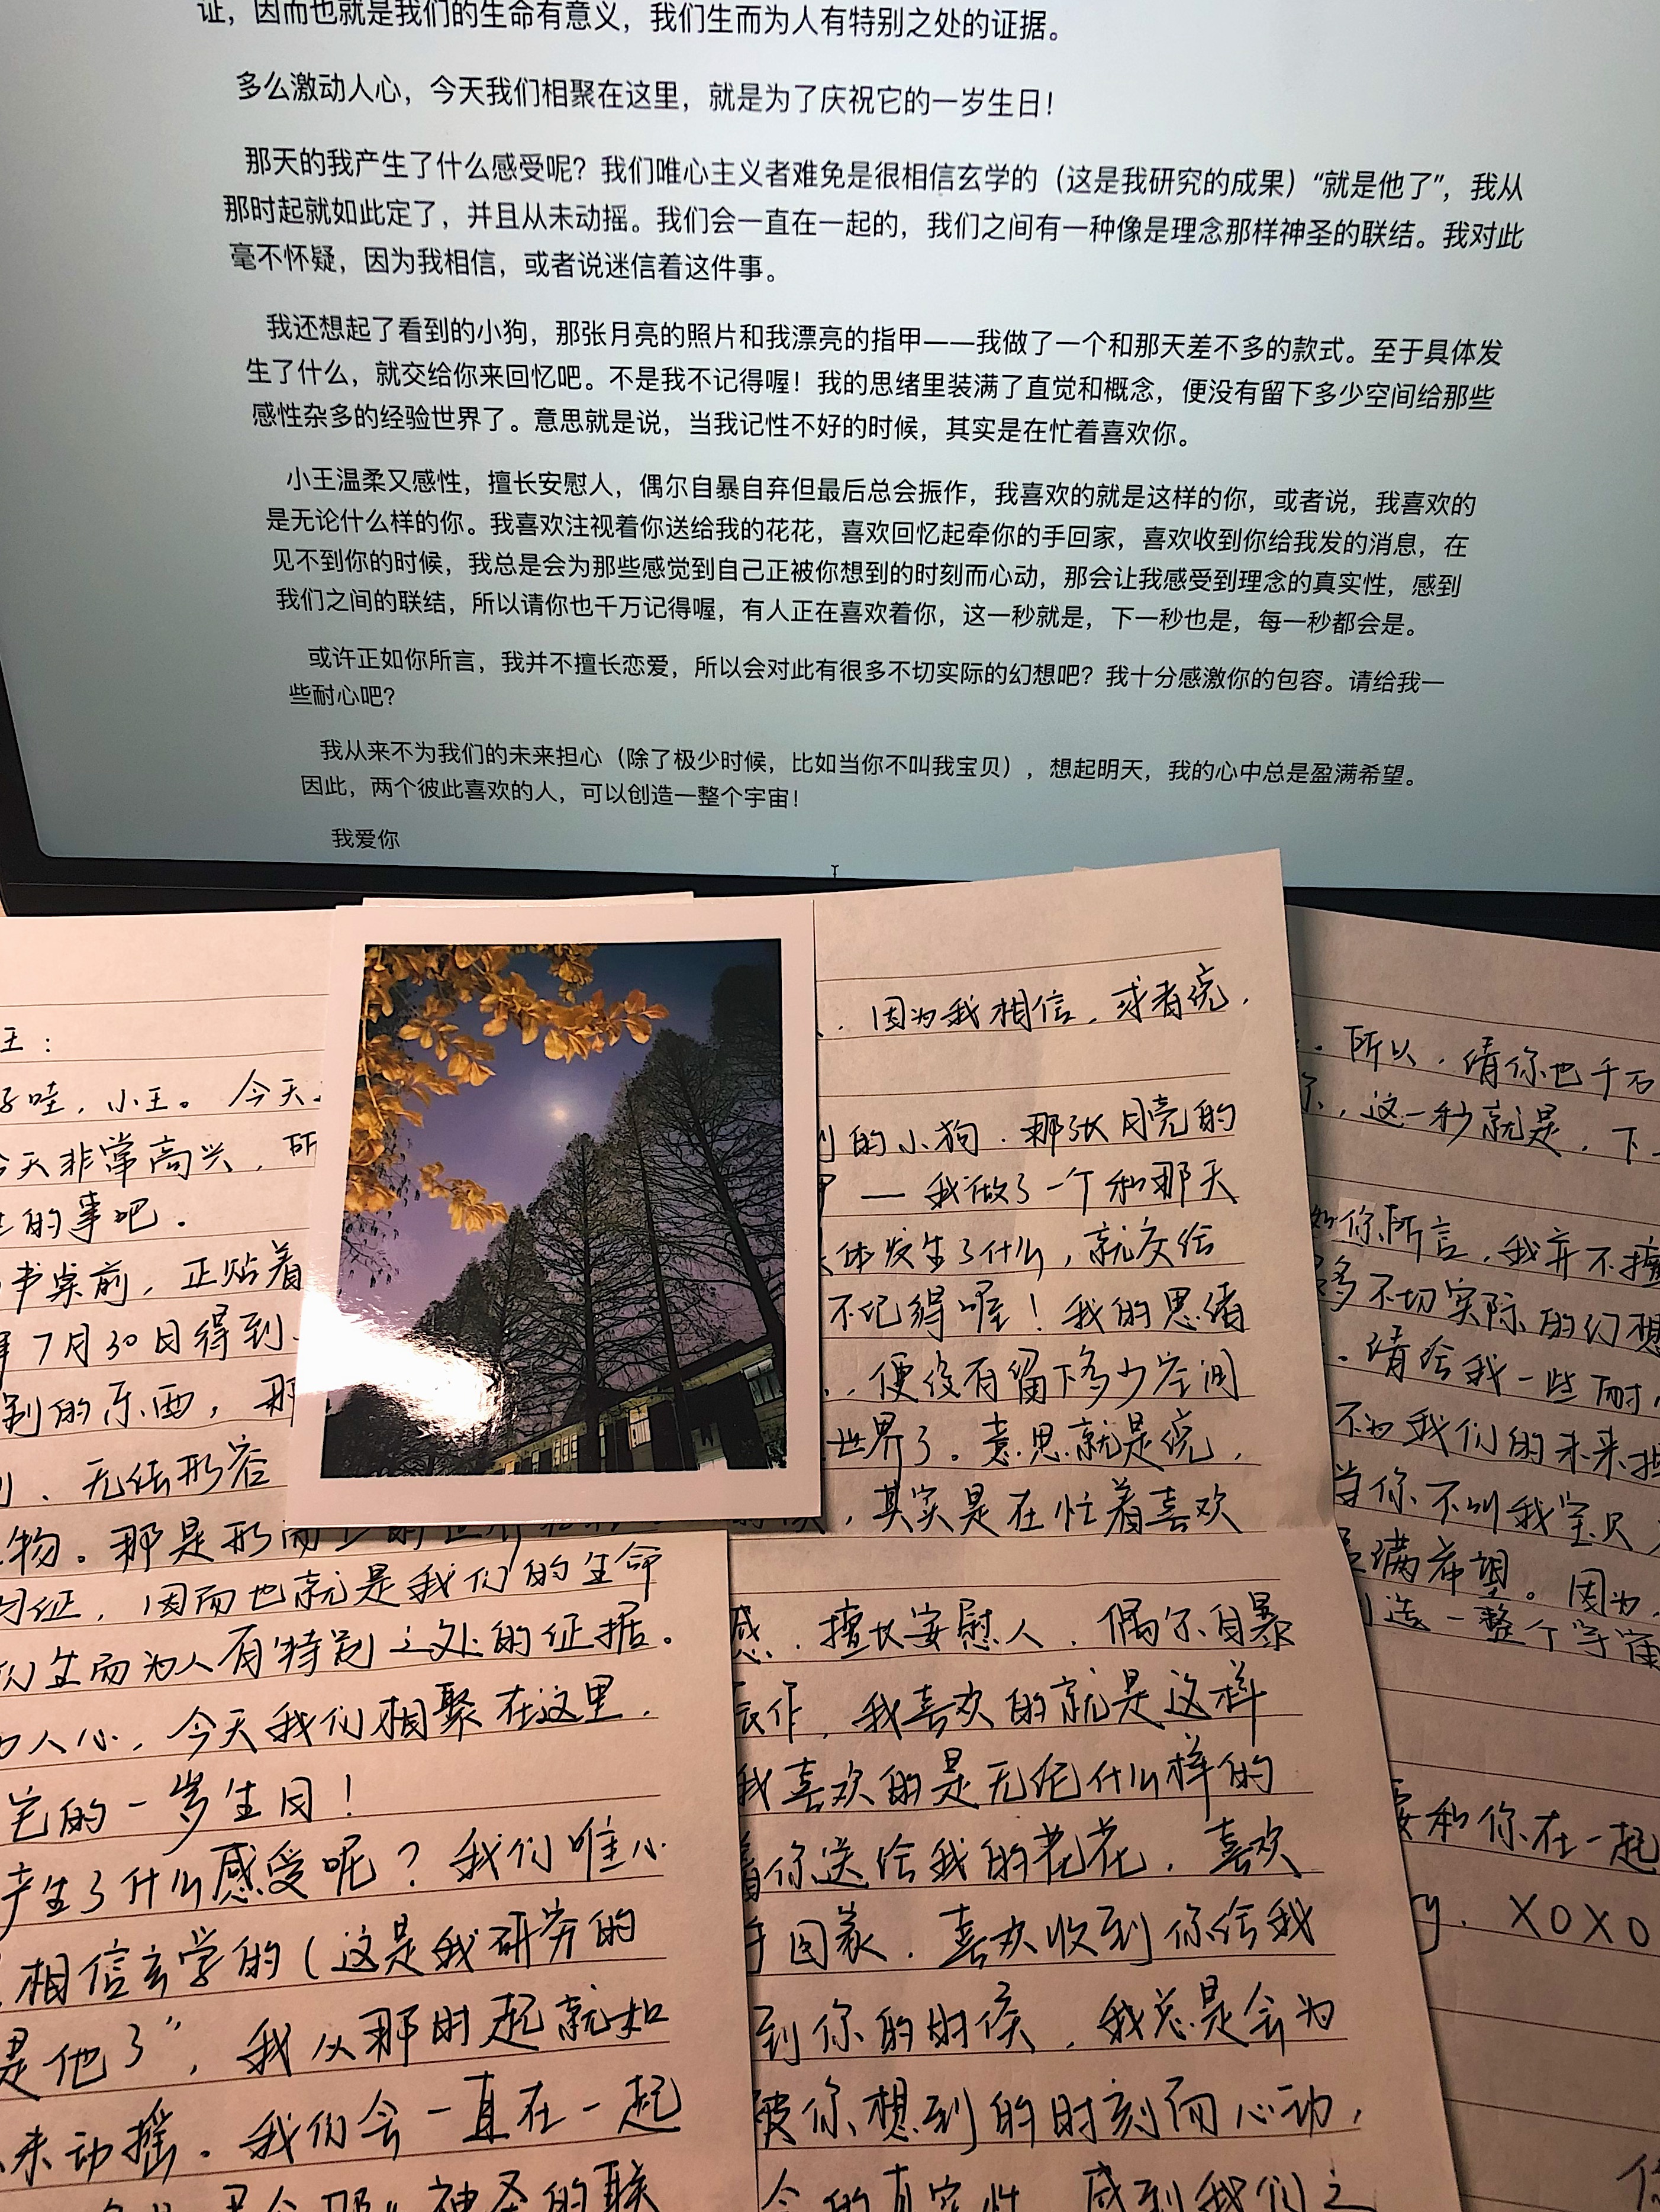 证，因而也就是我们的生命有意义，我们生而为人有特别之处的证据。
多么激动人心，今天我们相聚在这里，就是为了庆祝它的一岁生日！
那天的我产生了什么感受呢？我们唯心主义者难免是很相信玄学的（这是我研究的成果）“就是他了”，我从
那时起就如此定了，并且从未动摇。我们会一直在一起的，我们之间有一种像是理念那样神圣的联结。我对此
毫不怀疑，因为我相信，或者说迷信着这件事。
我还想起了看到的小狗，那张月亮的照片和我漂亮的指甲——我做了一个和那天差不多的款式。至于具体发
生了什么，就交给你来回忆吧。不是我不记得喔！我的思绪里装满了直觉和概念，便没有留下多少空间给那些
感性杂多的经验世界了。意思就是说，当我记性不好的时候，其实是在忙着喜欢你。
小王温柔又感性，擅长安慰人，偶尔自暴自弃但最后总会振作，我喜欢的就是这样的你，或者说，我喜欢的
是无论什么样的你。我喜欢注视着你送给我的花花，喜欢回忆起牵你的手回家，喜欢收到你给我发的消息，在
见不到你的时候，我总是会为那些感觉到自己正被你想到的时刻而心动，那会让我感受到理念的真实性，感到
我们之间的联结，所以请你也千万记得喔，有人正在喜欢着你，这一秒就是，下一秒也是，每一秒都会是。
或许正如你所言，我并不擅长恋爱，所以会对此有很多不切实际的幻想吧？我十分感激你的包容。请给我一
些耐心吧？
我从来不为我们的未来担心（除了极少时候，比如当你不叫我宝贝），想起明天，我的心中总是盈满希望。
因此，两个彼此喜欢的人，可以创造一整个宇宙！
我爱你
王：
好哇，小王。今天
今天非常高兴，所
的事吧。
书桌前，正贴着
7月30日得到
别的东西，那
无法形容
物。那是形而上的世界
证，因而也就是我们的生命
们生而为人有特别之处的证据。
人心，今天我们相聚在这里，
它的一岁生日！
产生了什么感受呢？我们唯心
相信玄学的（这是我研究的
是他了”，我从那时起就如
未动摇。我们会一直在一起
神圣的联
，因为我相信，或者说，
的小狗，那张月亮的
—我做了一个和那天
体发生了什么，就交给
不记得喔！我的思绪
，便没有留下多少空间
世界了。意思就是说，
，其实是在忙着喜欢
感，擅长安慰人，偶尔自暴
振作，我喜欢的就是这样
我喜欢的是无论什么样的
着你送给我的花花，喜欢
手回家，喜欢收到你给我
到你的时候，我总是会为
被你想到的时刻而心动，
念的真实性，感到我们之
。所以，请你也千万
你，这一秒就是，下一
如你所言，我并不擅
多不切实际的幻想
。请给我一些耐心
不为我们的未来担
当你不叫我宝贝
盈满希望。因为
创造一整个宇宙
要和你在一起
y. XOXO